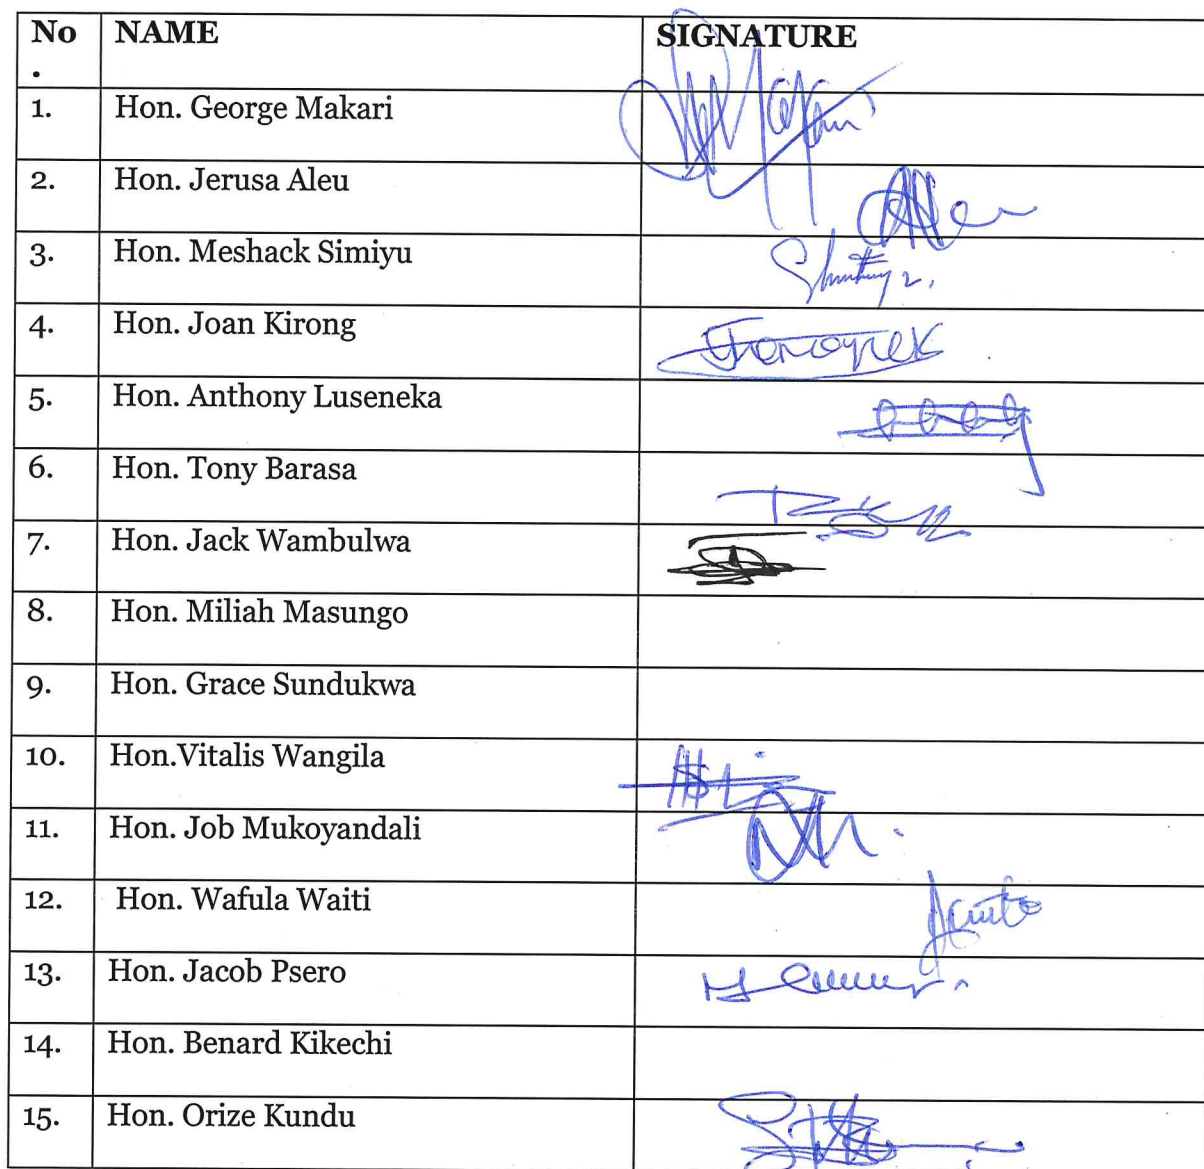 No NAME SIGNATURE
.
1. Hon. George Makari
2. Hon. Jerusa Aleu
3. Hon. Meshack Simiyu
4. Hon. Joan Kirong
5. Hon. Anthony Luseneka
6. Hon. Tony Barasa
7. Hon. Jack Wambulwa
8. Hon. Miliah Masungo
9. Hon. Grace Sundukwa
10. Hon.Vitalis Wangila
11. Hon. Job Mukoyandali
12. Hon. Wafula Waiti
13. Hon. Jacob Psero
14. Hon. Benard Kikechi
15. Hon. Orize Kundu